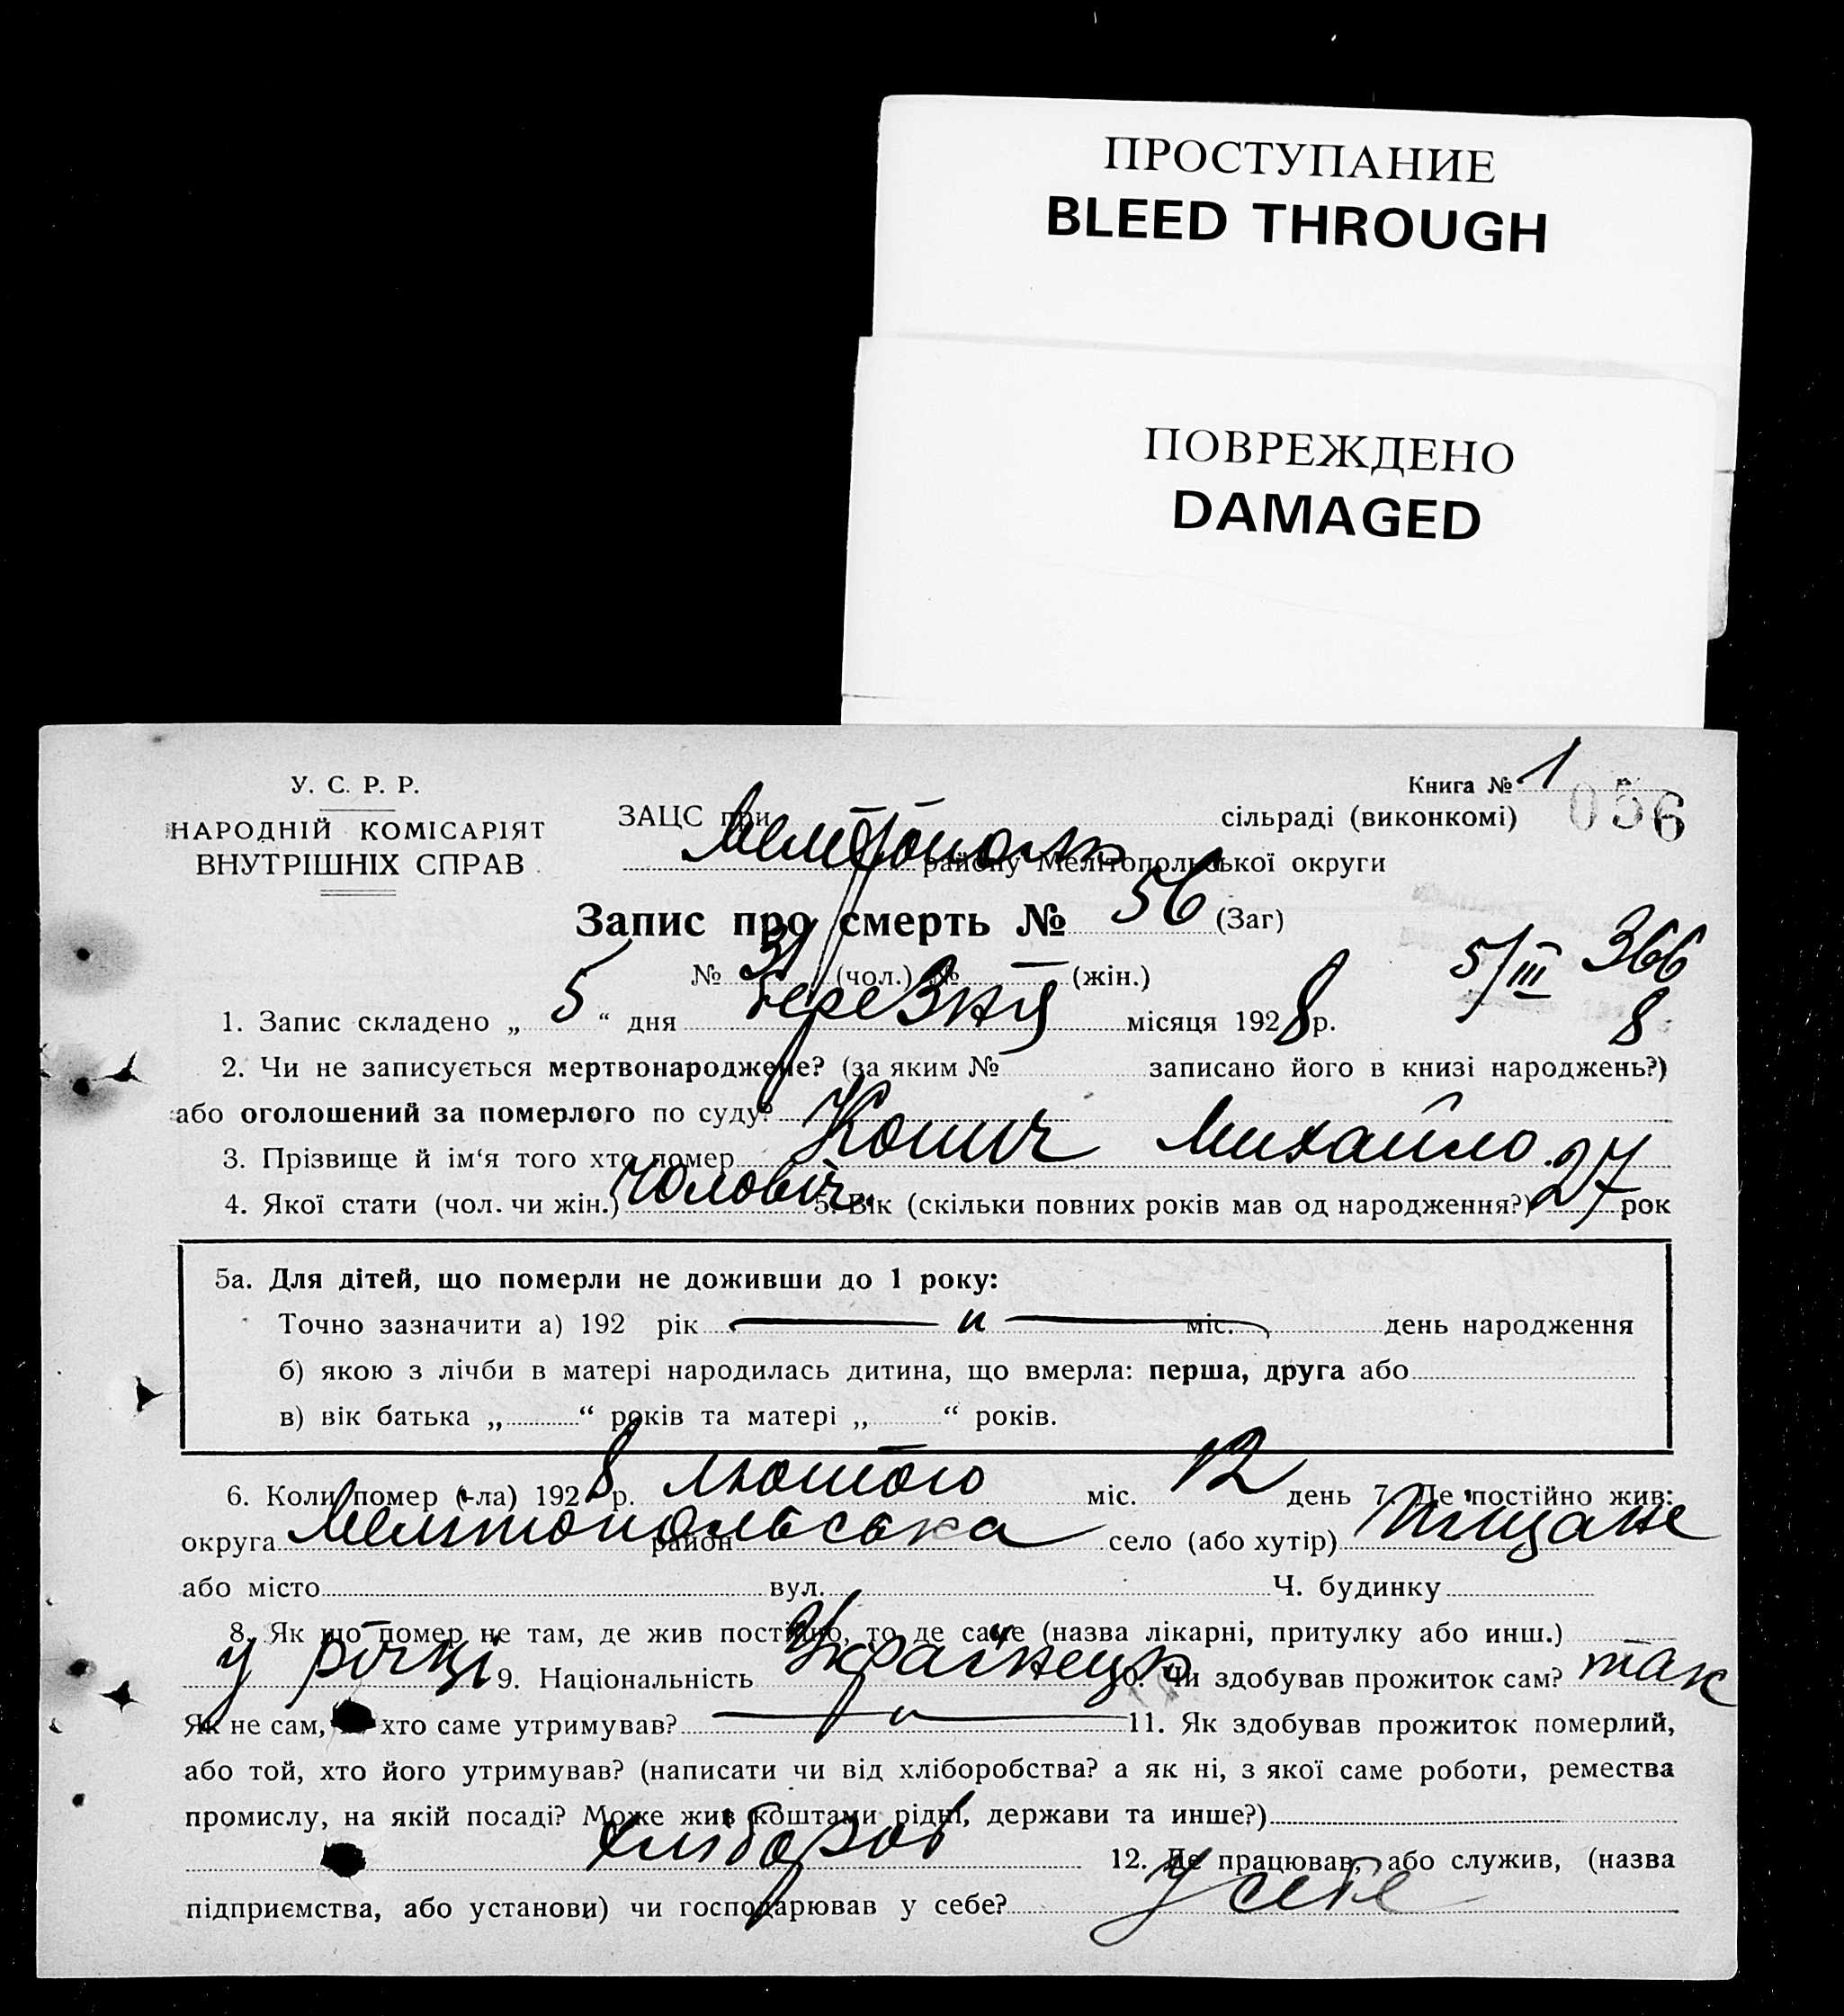 ПРОСТУПАНИЕ
BLEED THROUGH
ПОВРЕЖДЕНО
DAMAGED
У. С. Р. Р.
НАРОДНІЙ КОМІСАРІЯТ
ВНУТРІШНІХ СПРАВ
Книга № 1
056
ЗАЦС при Мелітополь сільраді (виконкомі)
району Мелітопольської округи
Запис про смерть № 56 (Заг)
№ 31 (чол.) № — (жін.)
5/III 366
8
1. Запис складено „ 5 “ дня березня місяця 1928 р.
2. Чи не записується мертвонароджене? (за яким № записано його в книзі народжень?)
або оголошений за померлого по суду?
3. Прізвище й ім‘я того хто помер Кошич Михайло
4. Якої стати (чол. чи жін.) Чоловіч. 5. Вік (скільки повних років мав од народження?) 27 рок
5а. Для дітей, що померли не доживши до 1 року:
Точно зазначити а) 192 рік — „ — міс. день народження
б) якою з лічби в матері народилась дитина, що вмерла: перша, друга або
в) вік батька „ “ років та матері „ “ років.
6. Коли помер (-ла) 1928 р. лютого міс. 12 день 7. Де постійно жив:
округа Мелітопольська район село (або хутір) Піщане
або місто вул. Ч. будинку
8. Як що помер не там, де жив постійно, то де саме (назва лікарні, притулку або инш.)
у річці 9. Національність Українець 10. Чи здобував прожиток сам? так
Як не сам, хто саме утримував? — „ — 11. Як здобував прожиток померлий,
або той, хто його утримував? (написати чи від хліборобства? а як ні, з якої саме роботи, ремества
промислу, на якій посаді? Може жив коштами рідні, держави та инше?)
хлібороб 12. Де працював, або служив, (назва
підприємства, або установи) чи господарював у себе? У себе